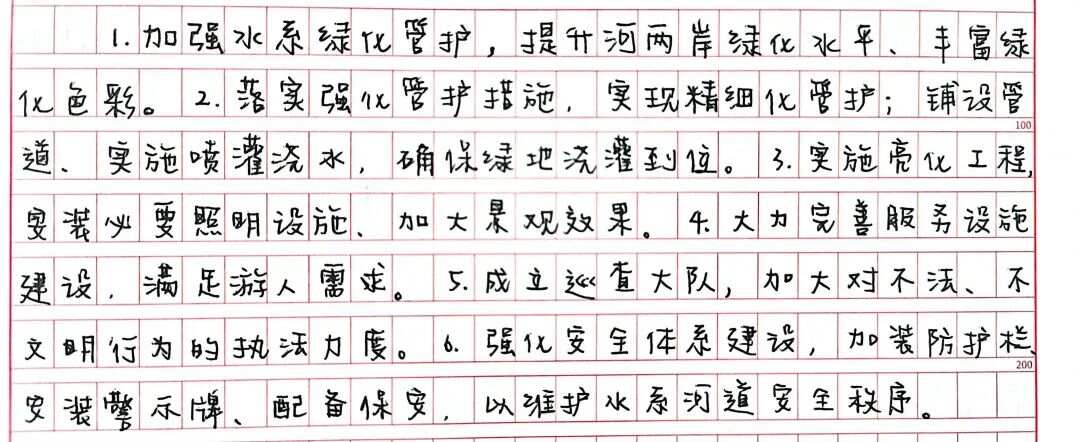 1.加强水系绿化管护,提升河两岸绿化水平、丰富绿
化色彩。2.落实强化管护措施,实现精细化管护;铺设管
100
道、实施喷灌浇水,确保绿地浇灌到位。3.实施亮化工程,
安装必要照明设施、加大景观效果。4.大力完善服务设施
建设,满足游人需求。5.成立巡查大队,加大对不法、不
文明行为的执法力度。6.强化安全体系建设,加装防护栏、
200
安装警示牌、配备保安,以维护水系河道安全秩序。